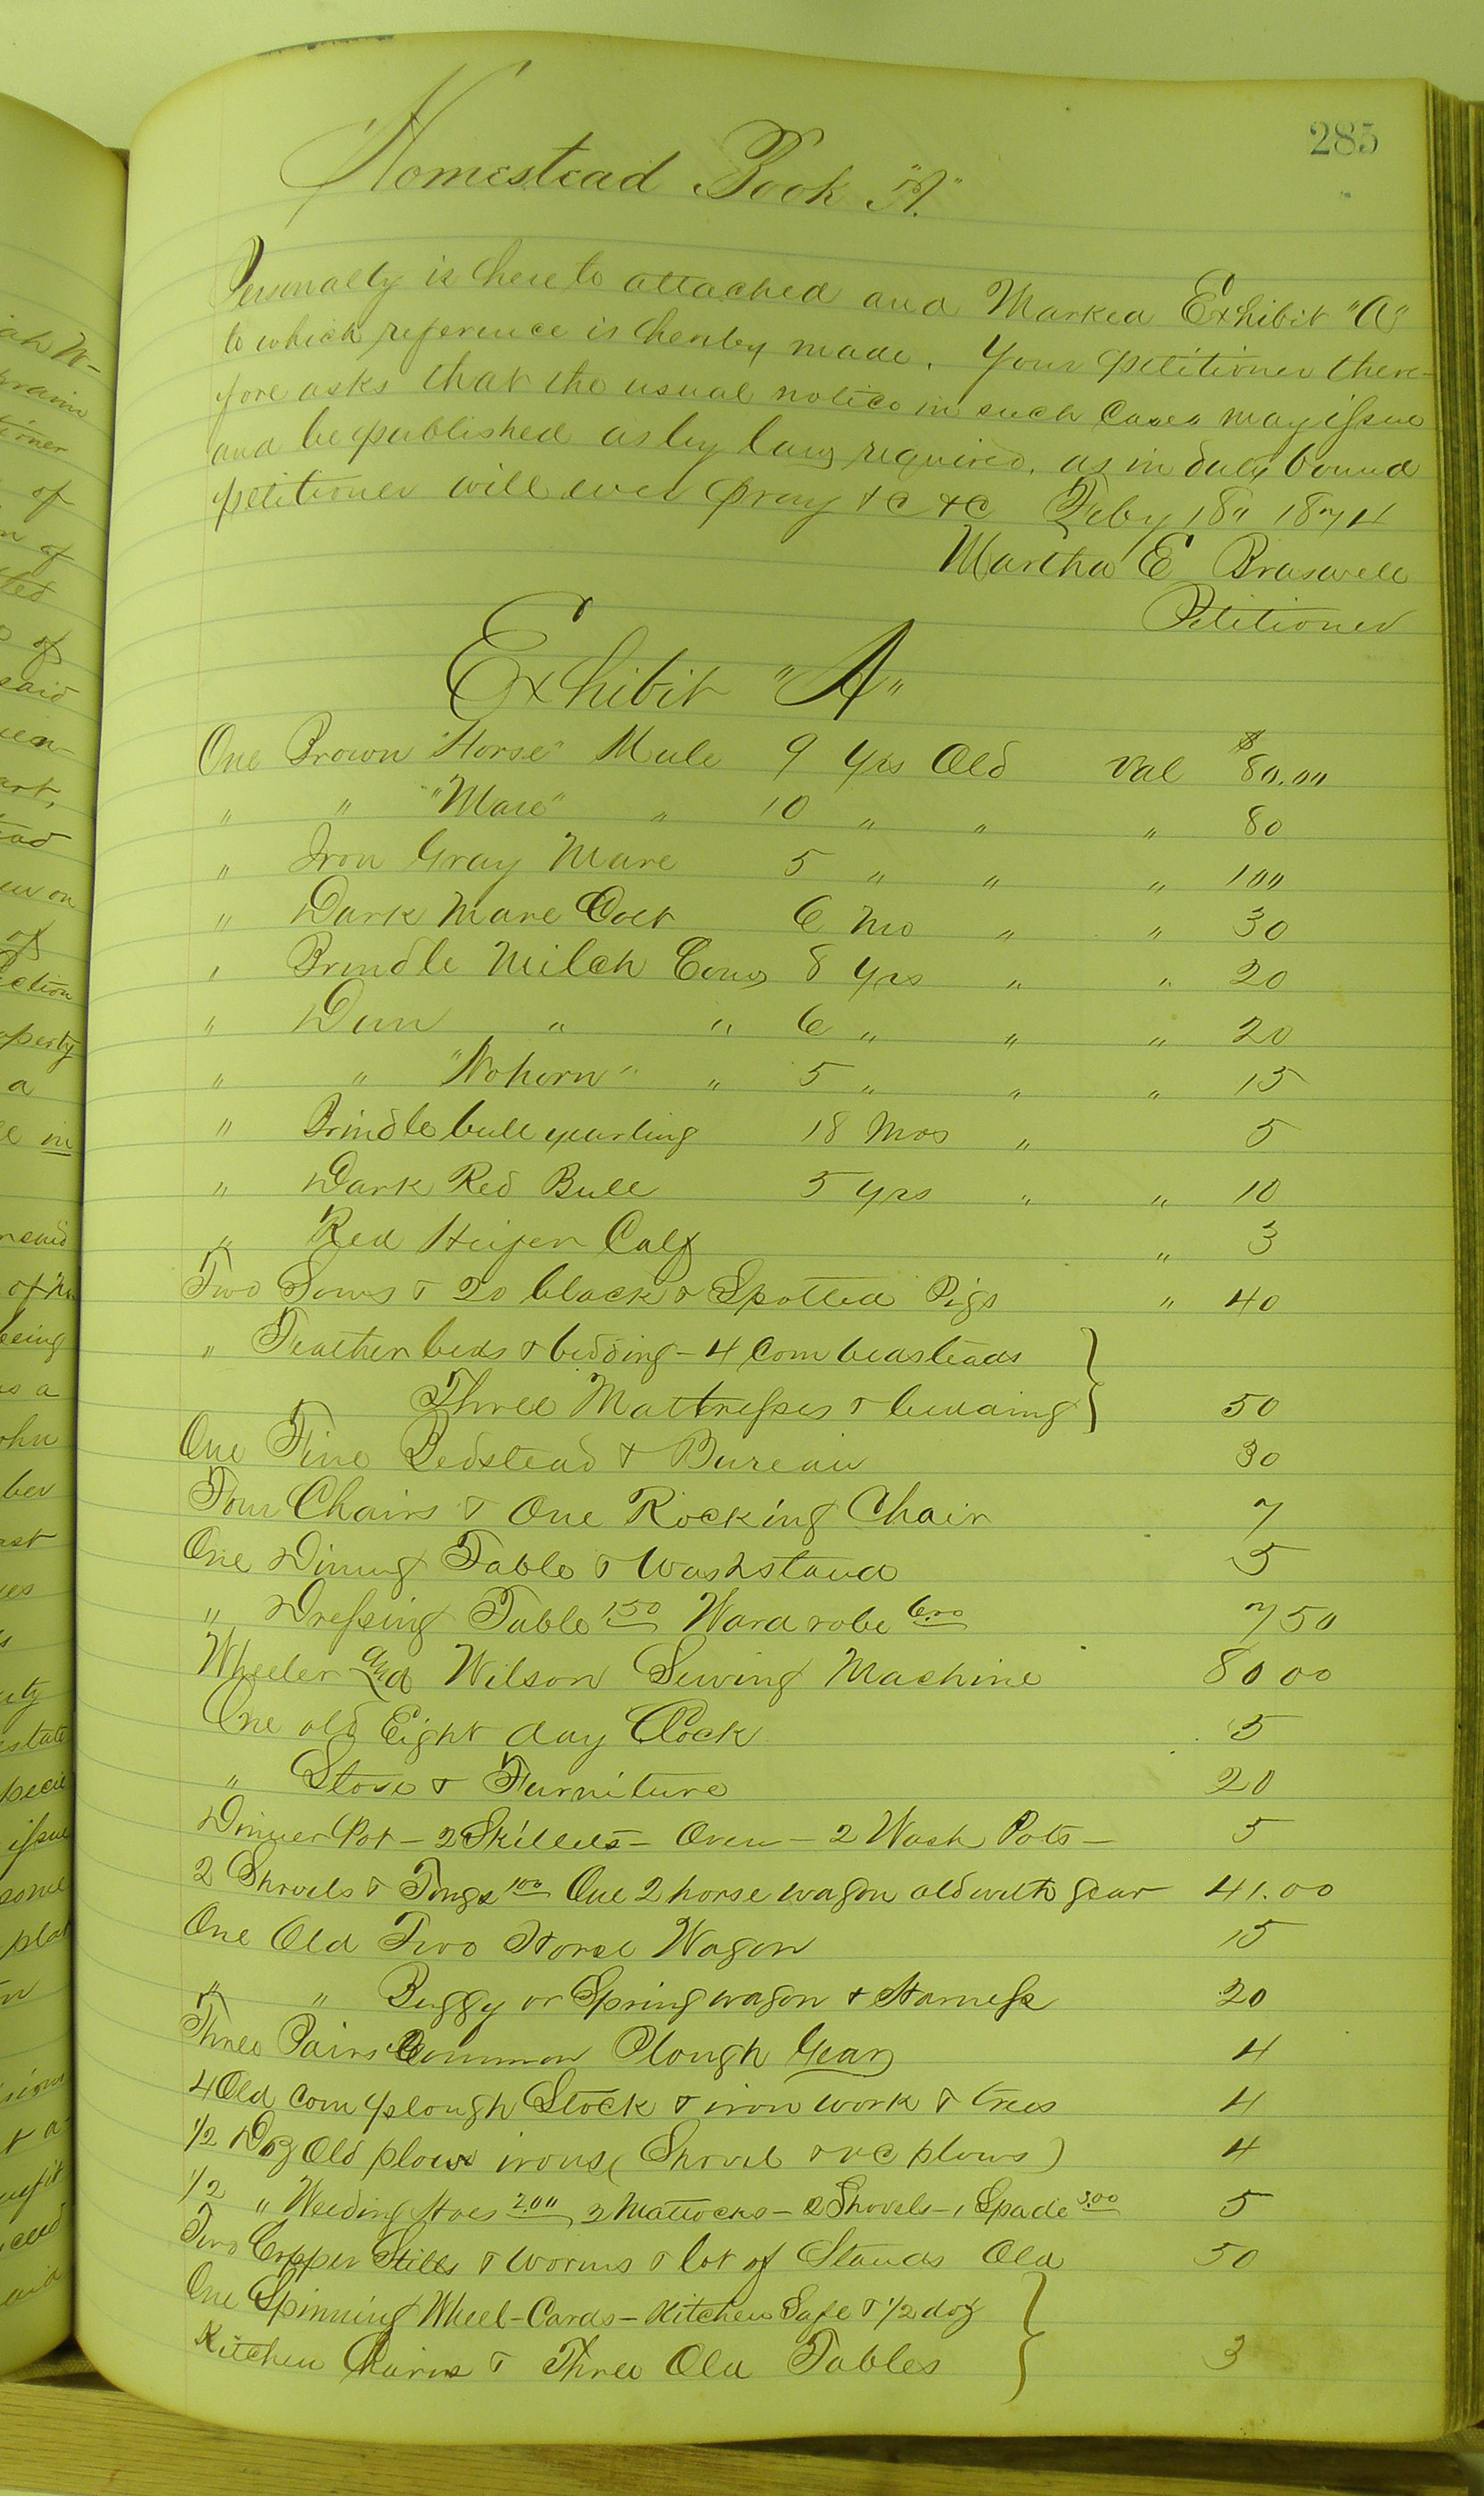 285
Homestead Book "A."
Personalty is hereto attached and Marked Exhibit "A"
to which reference is hereby made. Your petitioner there-
fore asks that the usual notice in such Cases may issue
and be published as by law required, as in duty bound
petitioner will ever pray &c &c Feby 18" 1874
Martha E Braswell
Petitioner
Exhibit "A"
One Brown "Horse" Mule 9 yrs Old Val $80.00
" " "Mare" " 10 " " " 80
" Iron Gray Mare 5 " " " 100
" Dark Mare Colt 6 Mo " " 30
" Brindle Milch Cow 8 yrs " " 20
" Dun " " 6 " " " 20
" " "Nohorn" " 5 " " " 15
" Brindle bull yearling 18 Mos " 5
" Dark Red Bull 5 yrs " " 10
" Red Heifer Calf " 3
Two Sows & 20 black & Spotted Pigs " 40
" Feather beds & bedding - 4 Com beasteads
Three Mattresses & bedding 50
One Fine Bedstead & Bureau 30
Four Chairs & One Rocking Chair 7
One Dining Table & Washstand 5
" Dressing Table 1.50 Wardrobe 6.00 7 50
Wheeler and Wilson Sewing Machine 80 00
One old Eight day Clock 5
" Stove & Furniture 20
Dinner Pot - 2 Skillets - Oven - 2 Wash Pots - 5
2 Shovels & Tongs 1.00 One 2 horse wagon old with gear 41.00
One Old Two Horse Wagon 15
" " Buggy or Spring wagon & Harness 20
Three Pairs Common Plough Gear 4
4 Old Com plough Stock & iron work & trees 4
1/2 Doz Old plow irons (Shovel & c plows) 4
1/2 " Weeding Hoes 2.00, 2 Mattocks - 2 Shovels - 1 Spade 3.00 5
Two Copper Stills & worms & lot of Stands Old 50
One Spinning Wheel - Cards - Kitchen Safe & 1/2 doz
Kitchen Chairs & Three Old Tables 3